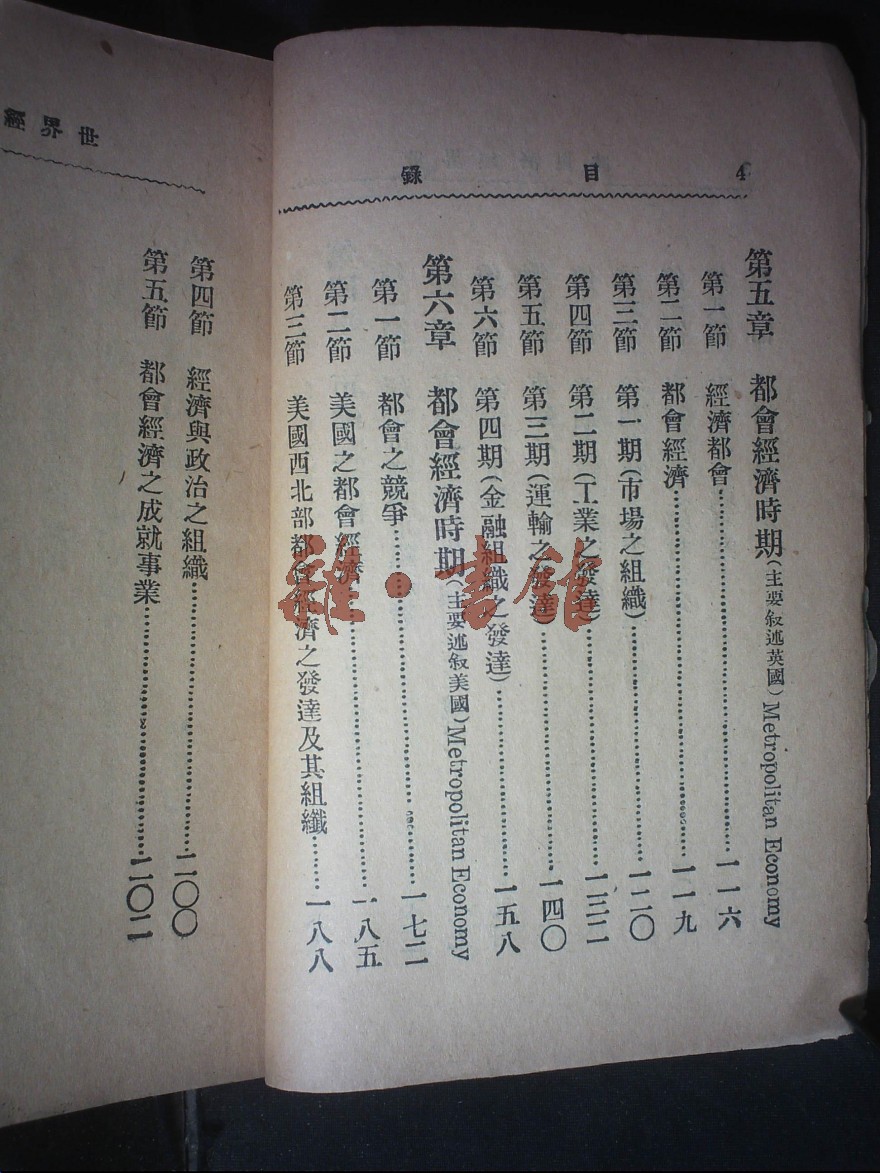 4 目 錄
第五章 都會經濟時期(主要敘述英國) Metropolitan Economy
第一節 經濟都會……一一六
第二節 都會經濟……一一九
第三節 第一期(市場之組織)……一二〇
第四節 第二期(工業之發達)……一三二
第五節 第三期(運輸之發達)……一四〇
第六節 第四期(金融組織之發達)……一五八
第六章 都會經濟時期(主要述叙美國) Metropolitan Economy
第一節 都會之競爭……一七二
第二節 美國之都會經濟……一八五
第三節 美國西北部都會經濟之發達及其組織……一八八
世界經
第四節 經濟與政治之組織……二〇〇
第五節 都會經濟之成就事業……二〇二
雜·書館